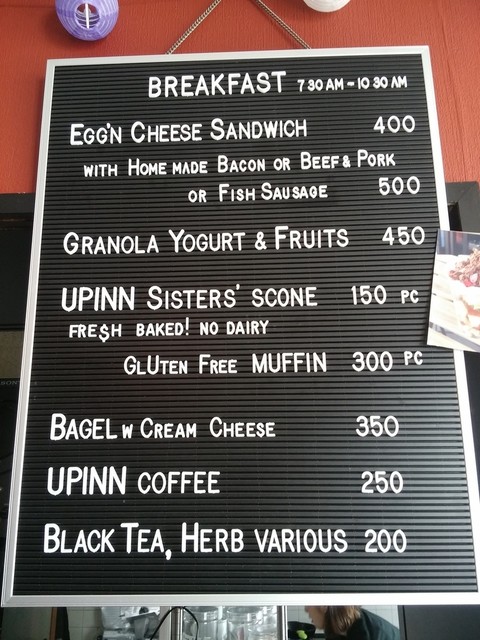 BREAKFAST 7 30 AM - 10 30 AM
EGG'N CHEESE SANDWICH 400
WITH HOME MADE BACON OR BEEF & PORK
OR FISH SAUSAGE 500
GRANOLA YOGURT & FRUITS 450
UPINN SISTERS' SCONE 150 PC
FRE$H BAKED! NO DAIRY
GLUTEN FREE MUFFIN 300 PC
BAGEL W CREAM CHEESE 350
UPINN COFFEE 250
BLACK TEA, HERB VARIOUS 200